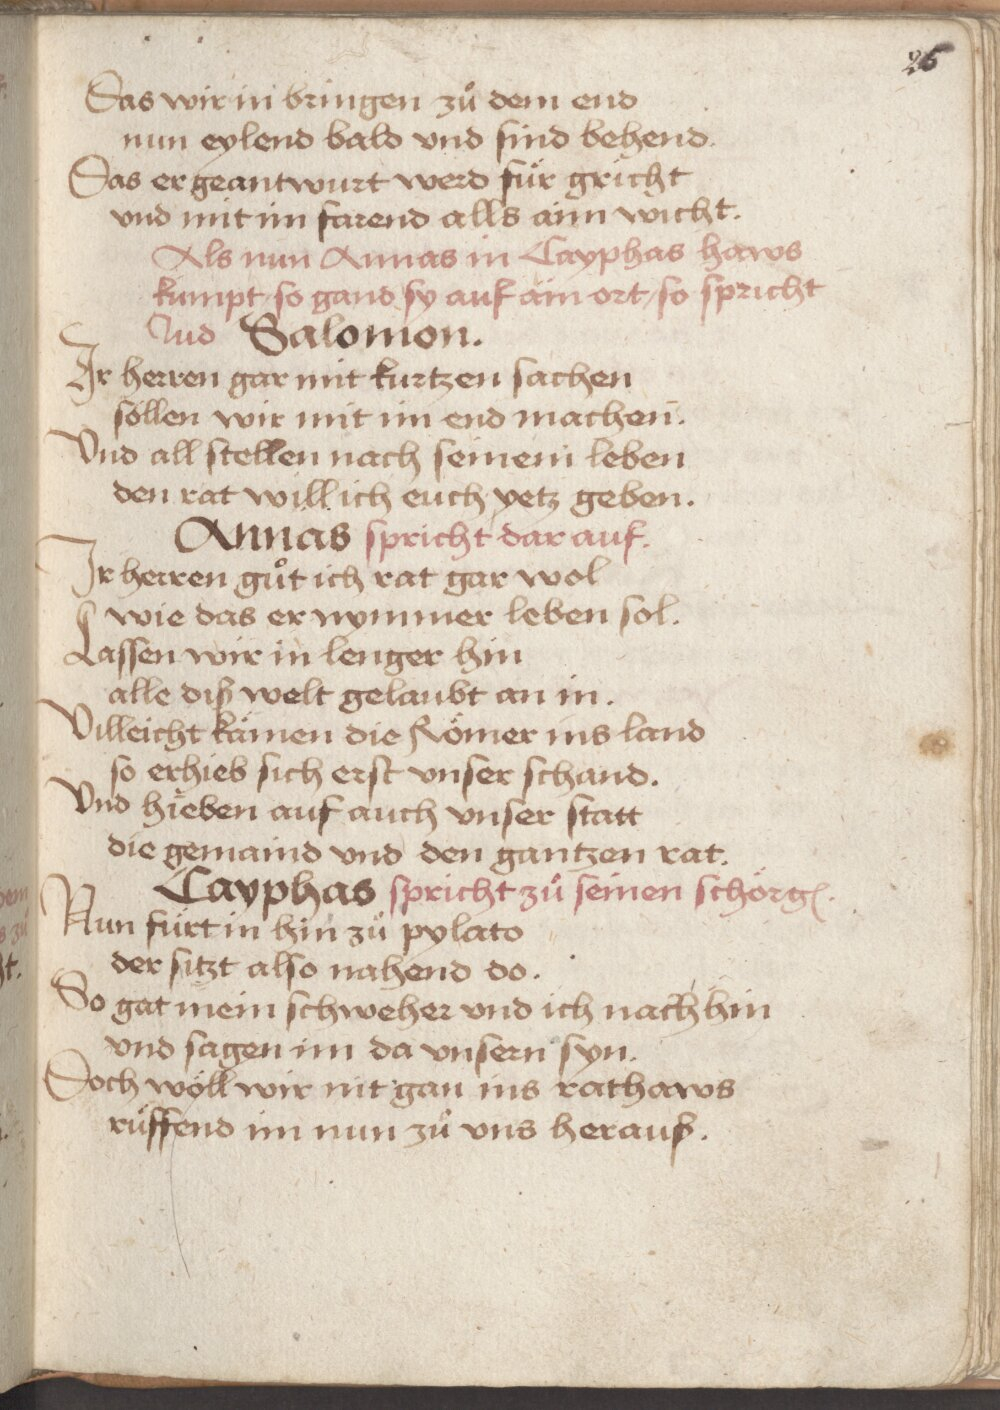 26
Das wir in bringen zů dem end
nun eylend bald vnd sind behend.
Das er geantwurt werd für gricht
vnd mit im farend alls aim wicht.
Als nun Annas in Cayphas haws
kumpt so gand sy auf ain ort / so spricht
Jud Salomon.
Ir herren gar mit kurtzen sachen
söllen wir mit im end machen.
Vnd all stellen nach seinem leben
den rat will ich euch yetz geben.
Annas spricht dar auf.
Ir herren gůt ich rat gar wol
wie das er nymmer leben sol.
Lassen wir in lenger hin
alle diß welt gelaubt an in.
Villeicht kämen die Römer ins land
so erhieb sich erst vnser schand.
Vnd hieben auf auch vnser statt
die gemaind vnd den gantzen rat.
Cayphas spricht zů seinen schörgẽ.
Nun fürt in hin zů pylato
der sitzt also nahend do.
So gat mein schweher vnd ich nach hin
vnd sagen im da vnsern syn.
Doch wöll wir nit gan ins rathaws
rüffend im nun zů vns herauß.